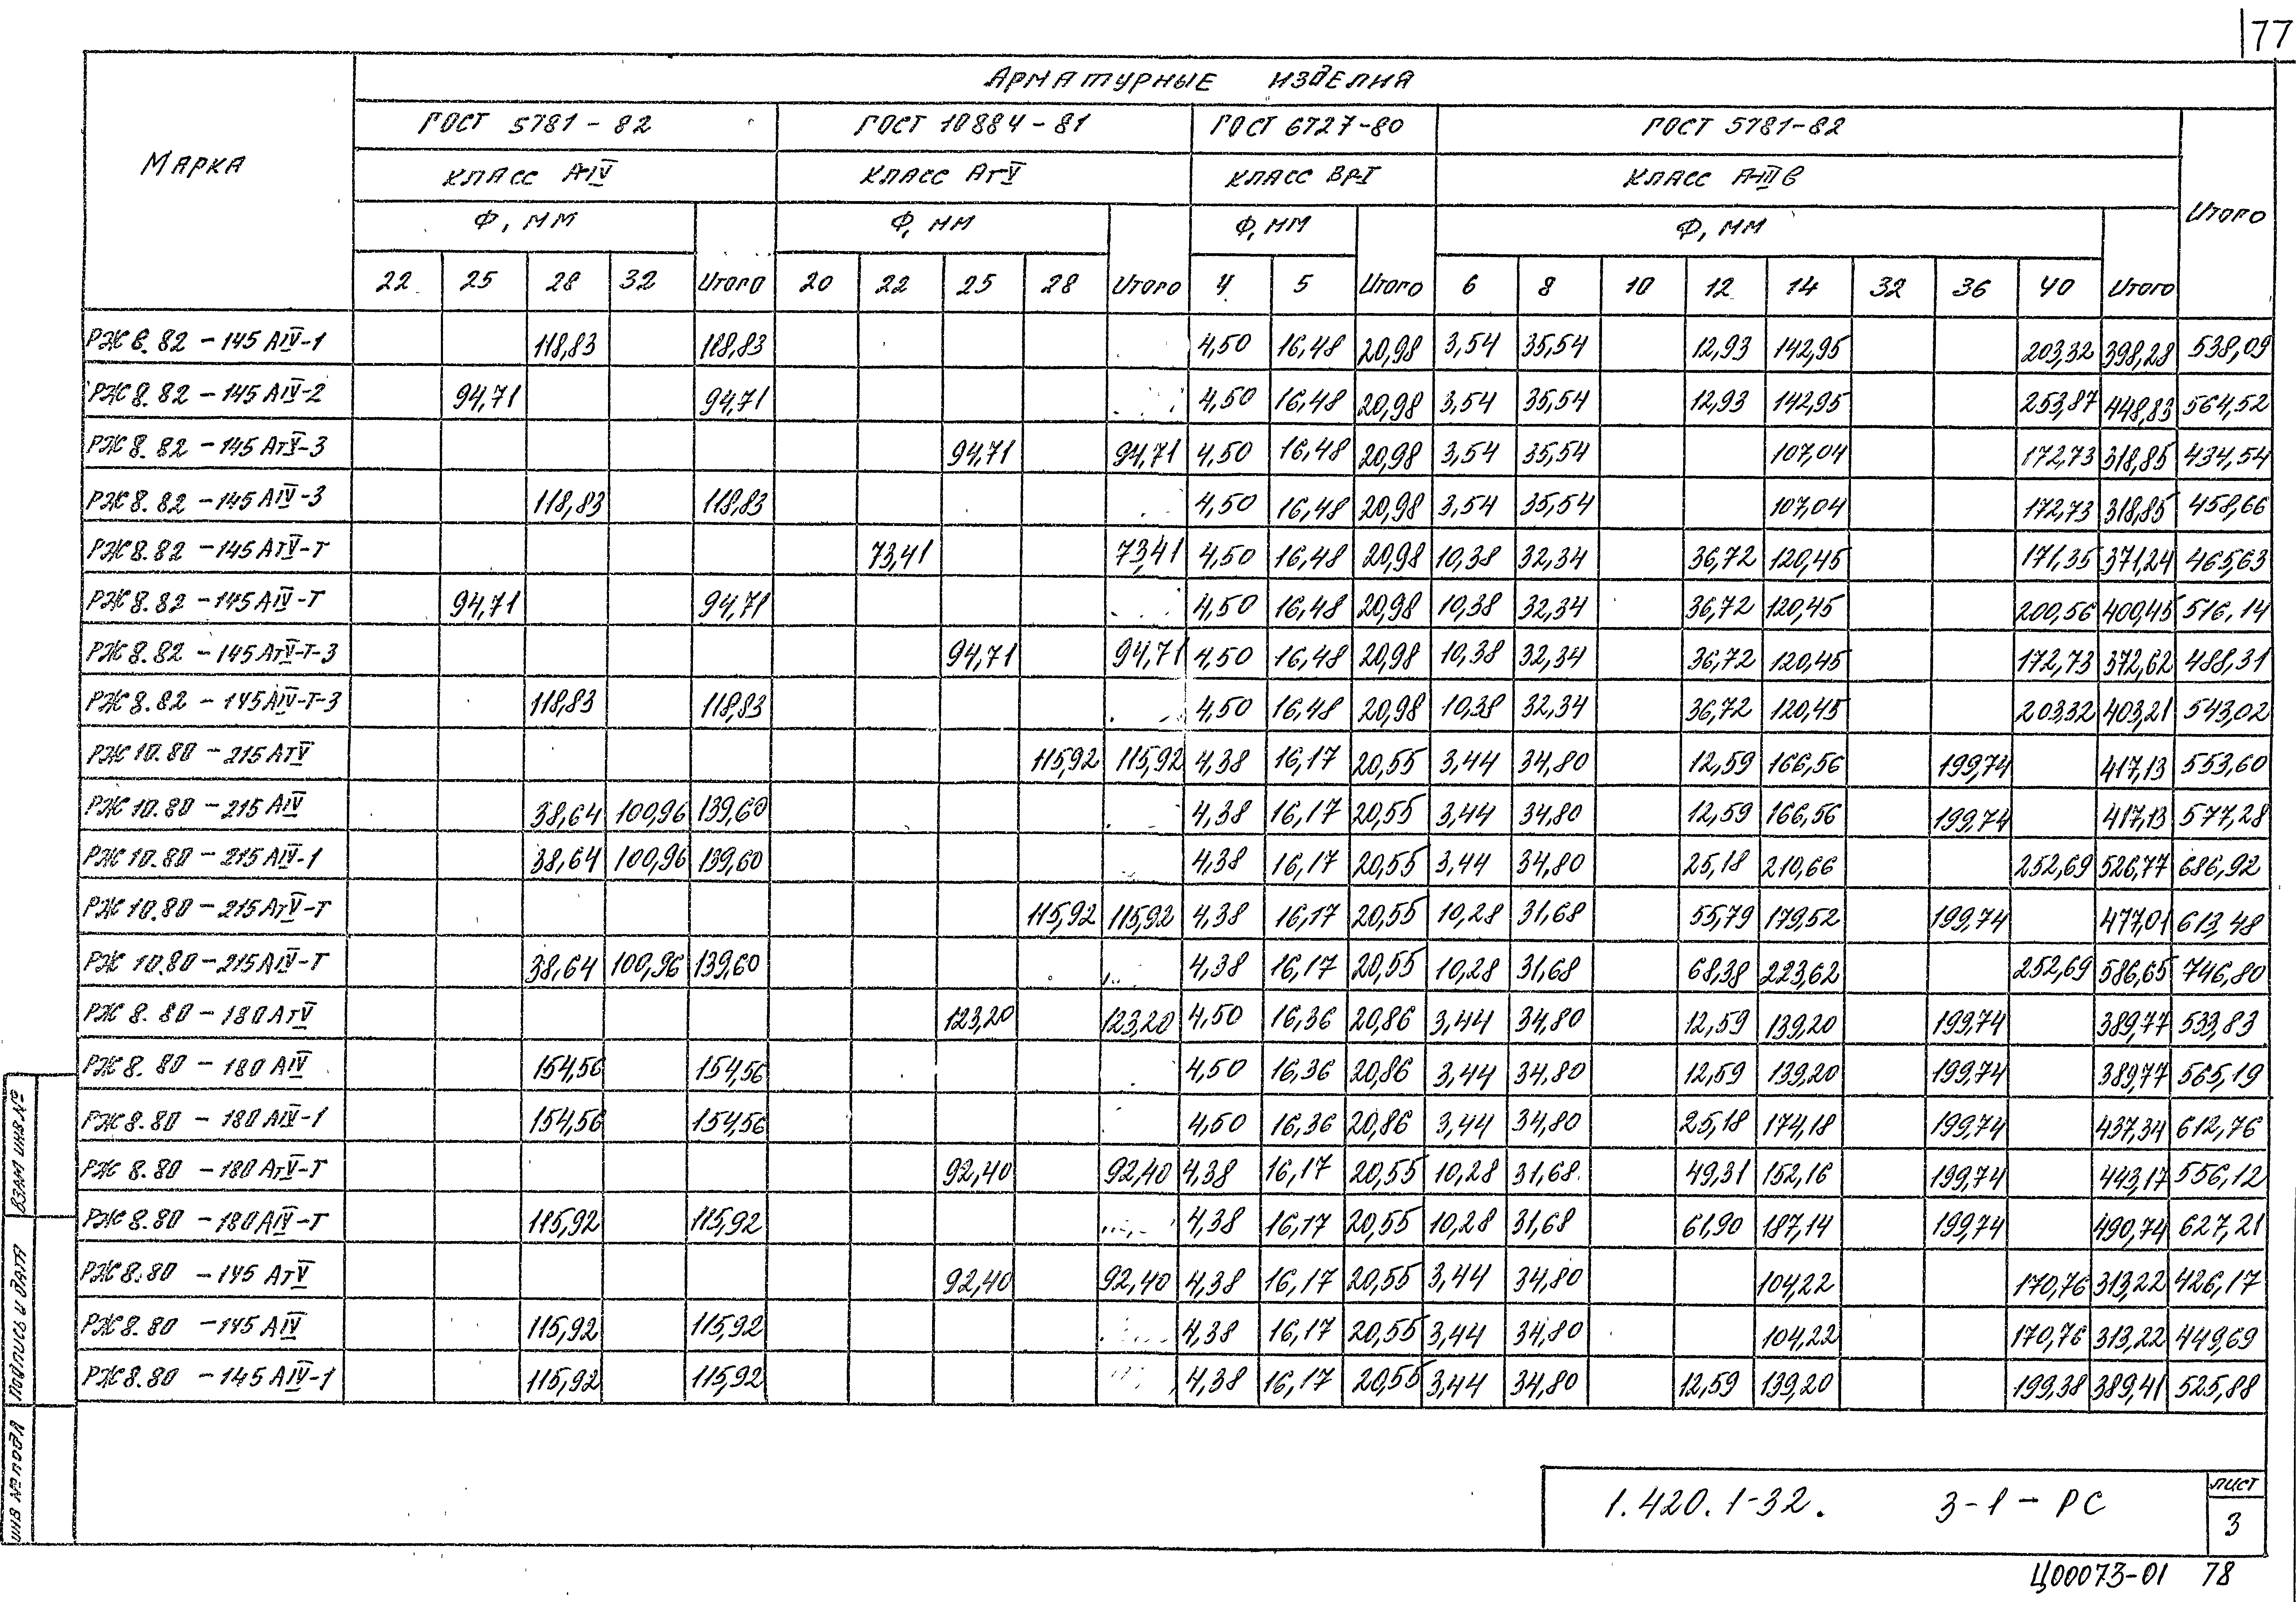 77
АРМАТУРНЫЕ ИЗДЕЛИЯ
МАРКА
ГОСТ 5781-82 ГОСТ 10884-81 ГОСТ 6727-80 ГОСТ 5781-82
КЛАСС А-IV КЛАСС Ат-V КЛАСС Вр-I КЛАСС А-IIIв
Ф, ММ Ф, ММ Ф, ММ Ф, ММ Итого
22 25 28 32 Итого 20 22 25 28 Итого 4 5 Итого 6 8 10 12 14 32 36 40 Итого
РЖ 8.82-145 АIV-1 118,83 118,83 4,50 16,48 20,98 3,54 35,54 12,93 142,95 203,32 398,28 538,09
РЖ 8.82-145 АIV-2 94,71 94,71 4,50 16,48 20,98 3,54 35,54 12,93 142,95 253,87 448,83 564,52
РЖ 8.82-145 АтV-3 94,71 94,71 4,50 16,48 20,98 3,54 35,54 107,04 172,73 318,85 434,54
РЖ 8.82-145 АIV-3 118,83 118,83 4,50 16,48 20,98 3,54 35,54 107,04 172,73 318,85 458,66
РЖ 8.82-145 АтV-Т 73,41 73,41 4,50 16,48 20,98 10,38 32,34 36,72 120,45 171,35 371,24 465,63
РЖ 8.82-145 АIV-Т 94,71 94,71 4,50 16,48 20,98 10,38 32,34 36,72 120,45 200,56 400,45 516,14
РЖ 8.82-145 АтV-Т-3 94,71 94,71 4,50 16,48 20,98 10,38 32,34 36,72 120,45 172,73 372,62 488,31
РЖ 8.82-145 АIV-Т-3 118,83 118,83 4,50 16,48 20,98 10,38 32,34 36,72 120,45 203,32 403,21 543,02
РЖ 10.80-215 АтV 115,92 115,92 4,38 16,17 20,55 3,44 34,80 12,59 166,56 199,74 417,13 553,60
РЖ 10.80-215 АIV 38,64 100,96 139,60 4,38 16,17 20,55 3,44 34,80 12,59 166,56 199,74 417,13 577,28
РЖ 10.80-215 АIV-1 38,64 100,96 139,60 4,38 16,17 20,55 3,44 34,80 25,18 210,66 252,69 526,77 686,92
РЖ 10.80-215 АтV-Т 115,92 115,92 4,38 16,17 20,55 10,28 31,68 55,79 179,52 199,74 477,01 613,48
РЖ 10.80-215 АIV-Т 38,64 100,96 139,60 4,38 16,17 20,55 10,28 31,68 68,38 223,62 252,69 586,65 746,80
РЖ 8.80-180 АтV 123,20 123,20 4,50 16,36 20,86 3,44 34,80 12,59 139,20 199,74 389,77 533,83
РЖ 8.80-180 АIV 154,56 154,56 4,50 16,36 20,86 3,44 34,80 12,59 139,20 199,74 389,77 565,19
РЖ 8.80-180 АIV-1 154,56 154,56 4,50 16,36 20,86 3,44 34,80 25,18 174,18 199,74 437,34 612,76
РЖ 8.80-180 АтV-Т 92,40 92,40 4,38 16,17 20,55 10,28 31,68 49,31 152,16 199,74 443,17 556,12
РЖ 8.80-180 АIV-Т 115,92 115,92 4,38 16,17 20,55 10,28 31,68 61,90 187,14 199,74 490,74 627,21
РЖ 8.80-145 АтV 92,40 92,40 4,38 16,17 20,55 3,44 34,80 104,22 170,76 313,22 426,17
РЖ 8.80-145 АIV 115,92 115,92 4,38 16,17 20,55 3,44 34,80 104,22 170,76 313,22 449,69
РЖ 8.80-145 АIV-1 115,92 115,92 4,38 16,17 20,55 3,44 34,80 12,59 139,20 199,38 389,41 525,88
ВЗАМ ИНВ.№
ПОДПИСЬ И ДАТА
ИНВ №ПОДЛ
1.420.1-32. 3-1-РС
ЛИСТ
3
Ц00073-01 78